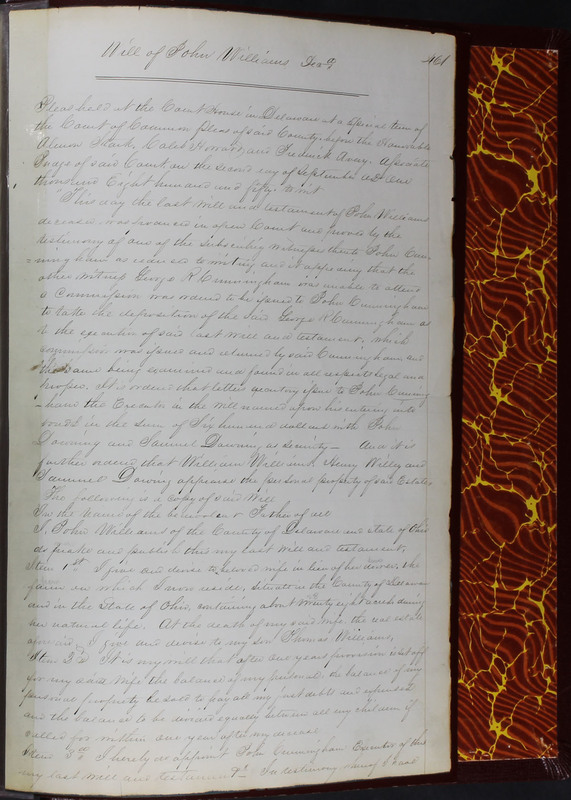 Will of John Williams Decd
461
Pleas held at the Court House in Delaware at a special term of
the Court of Common Pleas of said County, before the Honorable
Caleb Howard, and Frederick Avery, Associate
Judges of said Court on the second day of September AD One
thousand Eight hundred and fifty. to wit
This day the last Will and testament of John Williams
deceased, was produced in open Court and proved by the
testimony of one of the subscribing witnesses thereto John Cun
ningham as reduced to writing and it appearing that the
other witness George R Cunningham was unable to attend
a Commission was ordered to be issued to John Cunningham
to take the deposition of the said George R Cunningham as
to the execution of said last will and testament, which
commission was issued and returned by said Cunningham and
the same being examined and found in all respects legal and
proper. It is ordered that letters issue to John Cunning
ham the Executor in the Will named upon his entering into
bonds in the sum of Six hundred dollars with John
Downing and Samuel Downing as security — And it is
further ordered that William Williams, Henry Willey and
Samuel Downing appraise the personal property of said Estate
The following is a copy of said Will
In the Name of the benevolent Father of all
I, John Williams of the County of Delaware and state of Ohio
do make and publish this my last will and testament,
Item 1st I give and devise to my beloved wife in lieu of her dower, the
farm on which I now reside, situate in the County of Delaware
and in the State of Ohio, containing about twenty eight acres during
her natural life. At the death of my said wife the real estate
aforesaid, I give and devise to my son Thomas Williams,
Item 2d It is my will that after one years provision is set off
for my said wife the balance of my personal, the balance of my
personal property be sold to pay all my just debts and expenses
and the balance to be divided equally between all my children if
called for within one year after my decease
Item 3d I hereby do appoint John Cunningham Executor of this
my last will and testament. In testimony